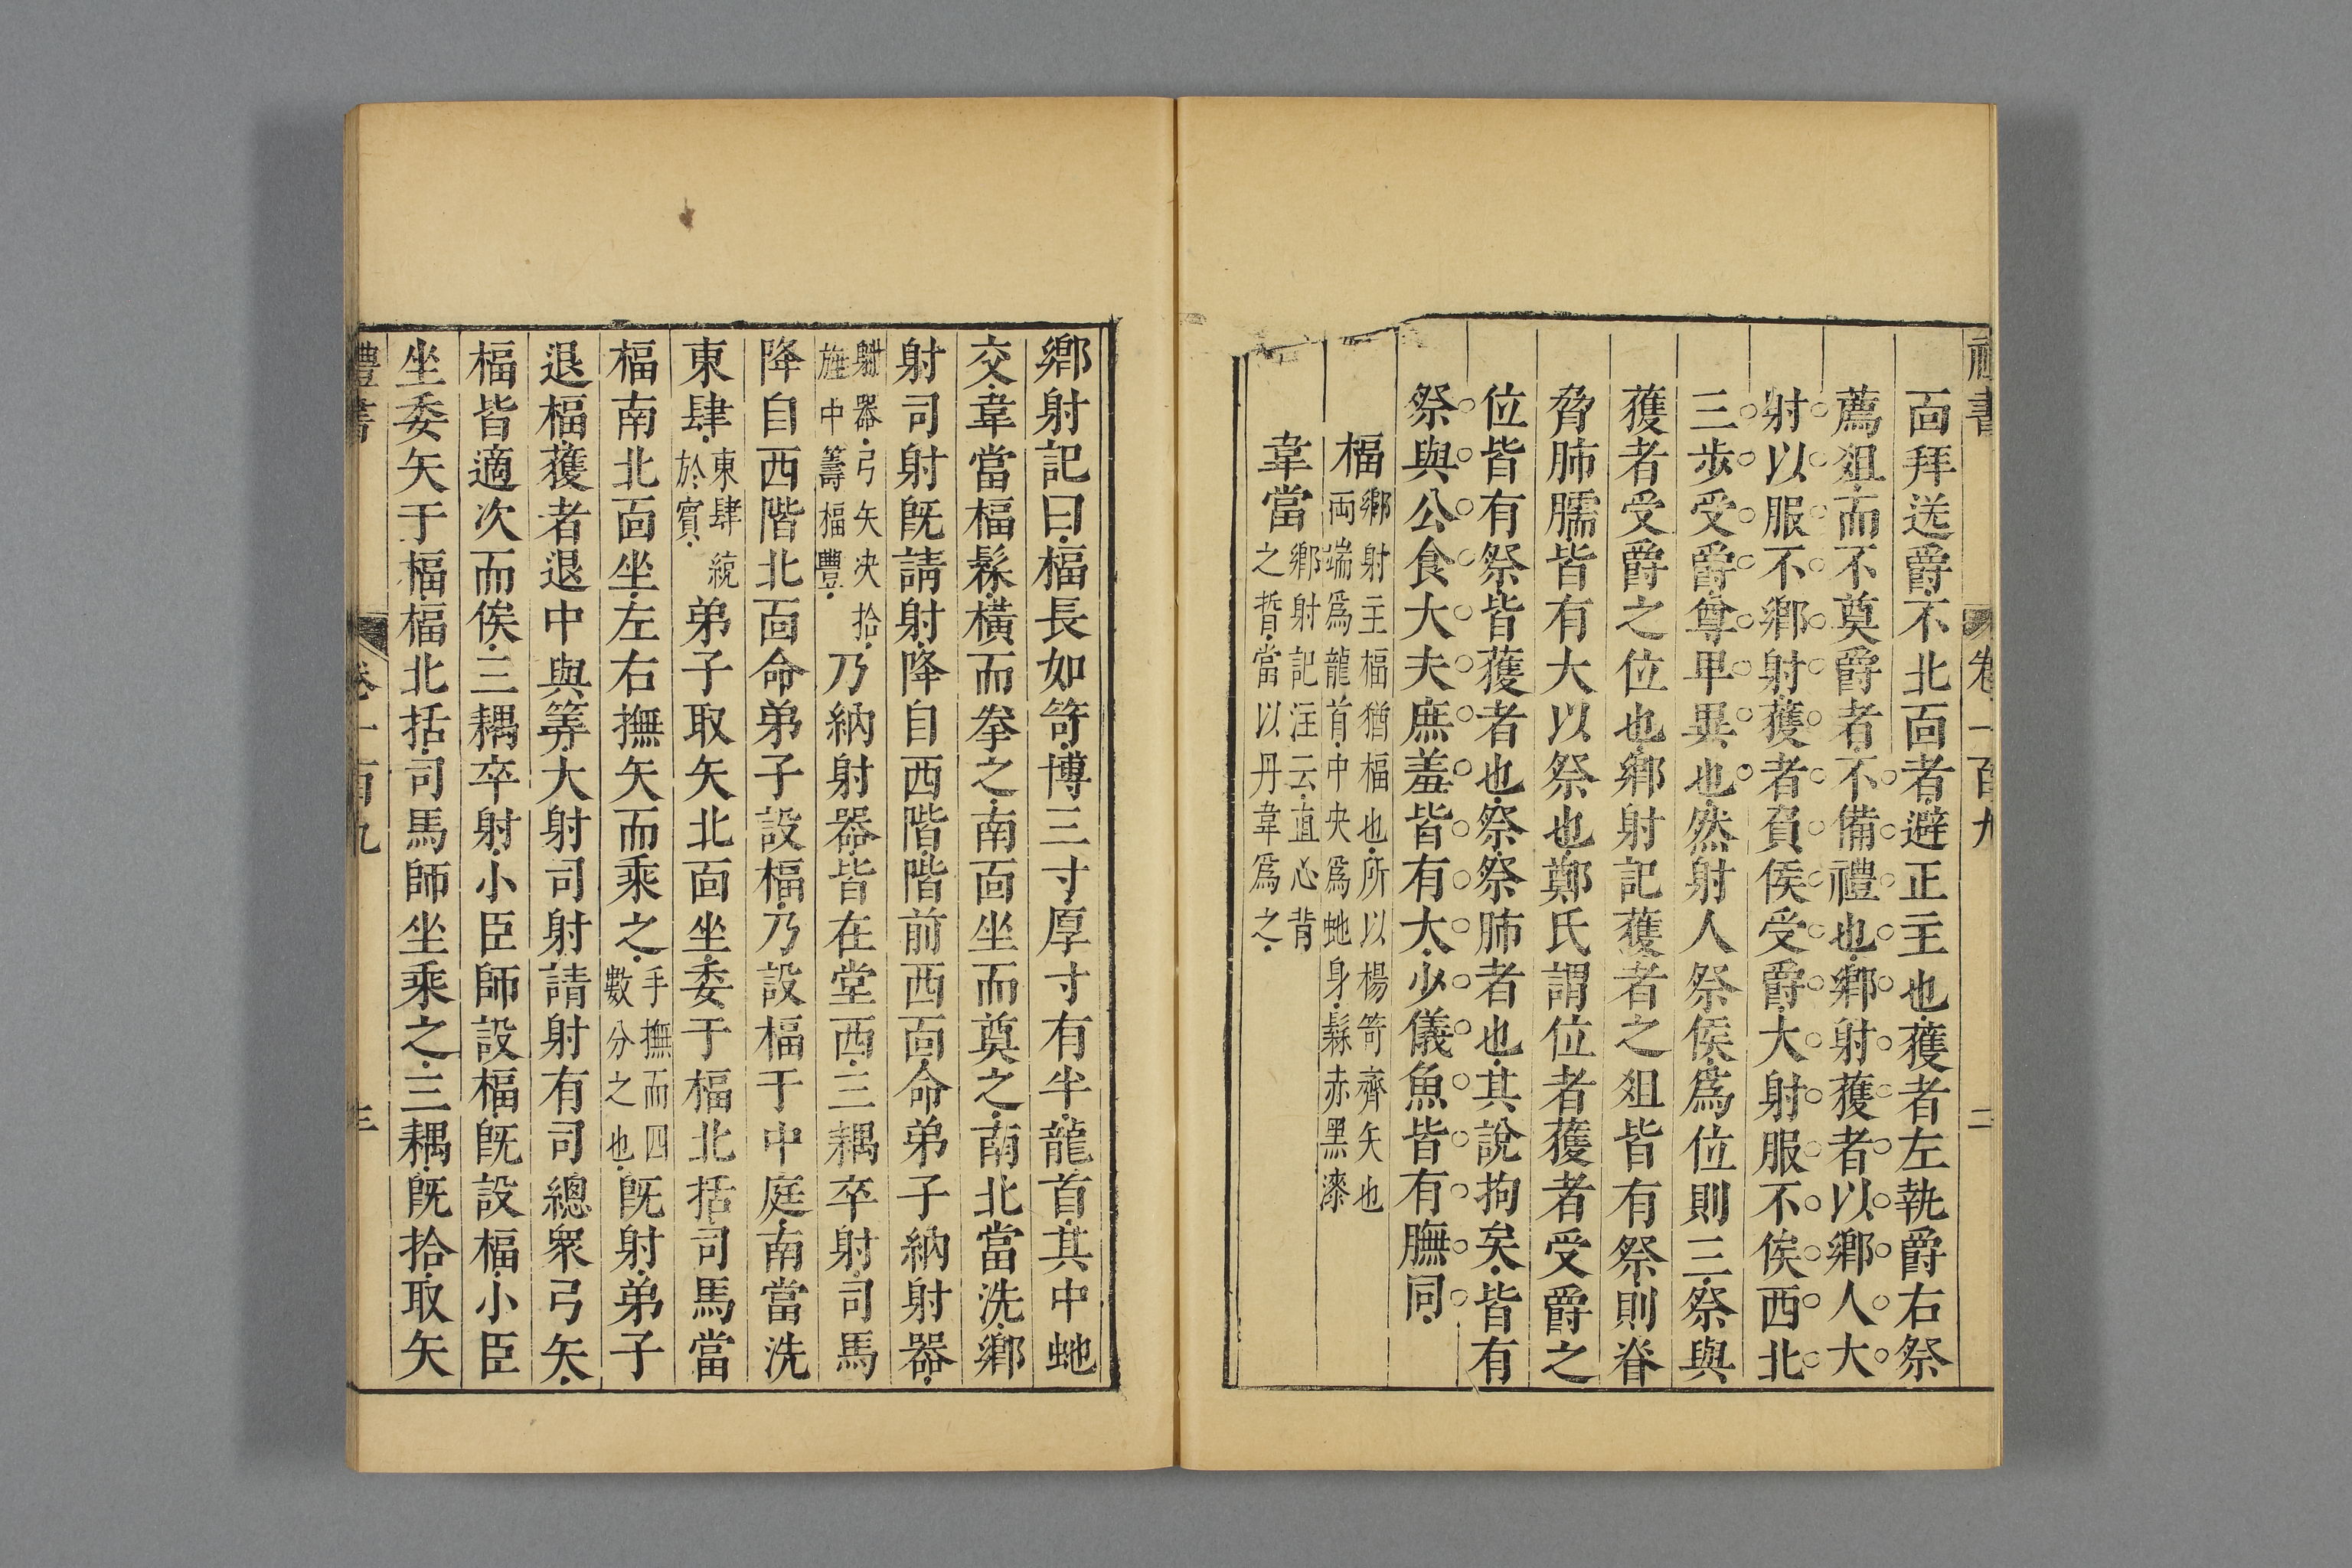 禮書 卷一百九 二
面拜送爵不北面者避正主也獲者左執爵右祭
薦俎而不奠爵者不備禮也鄉射獲者以鄉人大
射以服不鄉射獲者負侯受爵大射服不侯西北
三步受爵尊卑異也然射人祭侯爲位則三祭與
獲者受爵之位也鄉射記獲者之俎皆有祭則脊
脅肺臑皆有大以祭也鄭氏謂位者獲者受爵之
位皆有祭皆獲者也祭祭肺者也其說拘矣皆有
祭與公食大夫庶羞皆有大少儀魚皆有膴同
楅
鄉射主楅猶福也所以楊笴齊矢也
兩端爲龍首中央爲虵身髹赤黑漆
韋當
鄉射記注云直心背
之㫼當以丹韋爲之
鄉射記曰楅長如笴博三寸厚寸有半龍首其中虵
交韋當楅髹橫而拳之南面坐而奠之南北當洗鄉
射司射旣請射降自西階階前西面命弟子納射器
射器弓矢决拾
旌中籌楅豐
乃納射器皆在堂西三耦卒射司馬
降自西階北面命弟子設楅乃設楅于中庭南當洗
東肆
東肆統
於賓
弟子取矢北面坐委于楅北括司馬當
楅南北面坐左右撫矢而乘之
手撫而四
數分之也
旣射弟子
退楅獲者退中與筭大射司射請射有司總衆弓矢
楅皆適次而俟三耦卒射小臣師設楅旣設楅小臣
坐委矢于楅楅北括司馬師坐乘之三耦旣拾取矢
禮書 卷一百九 三